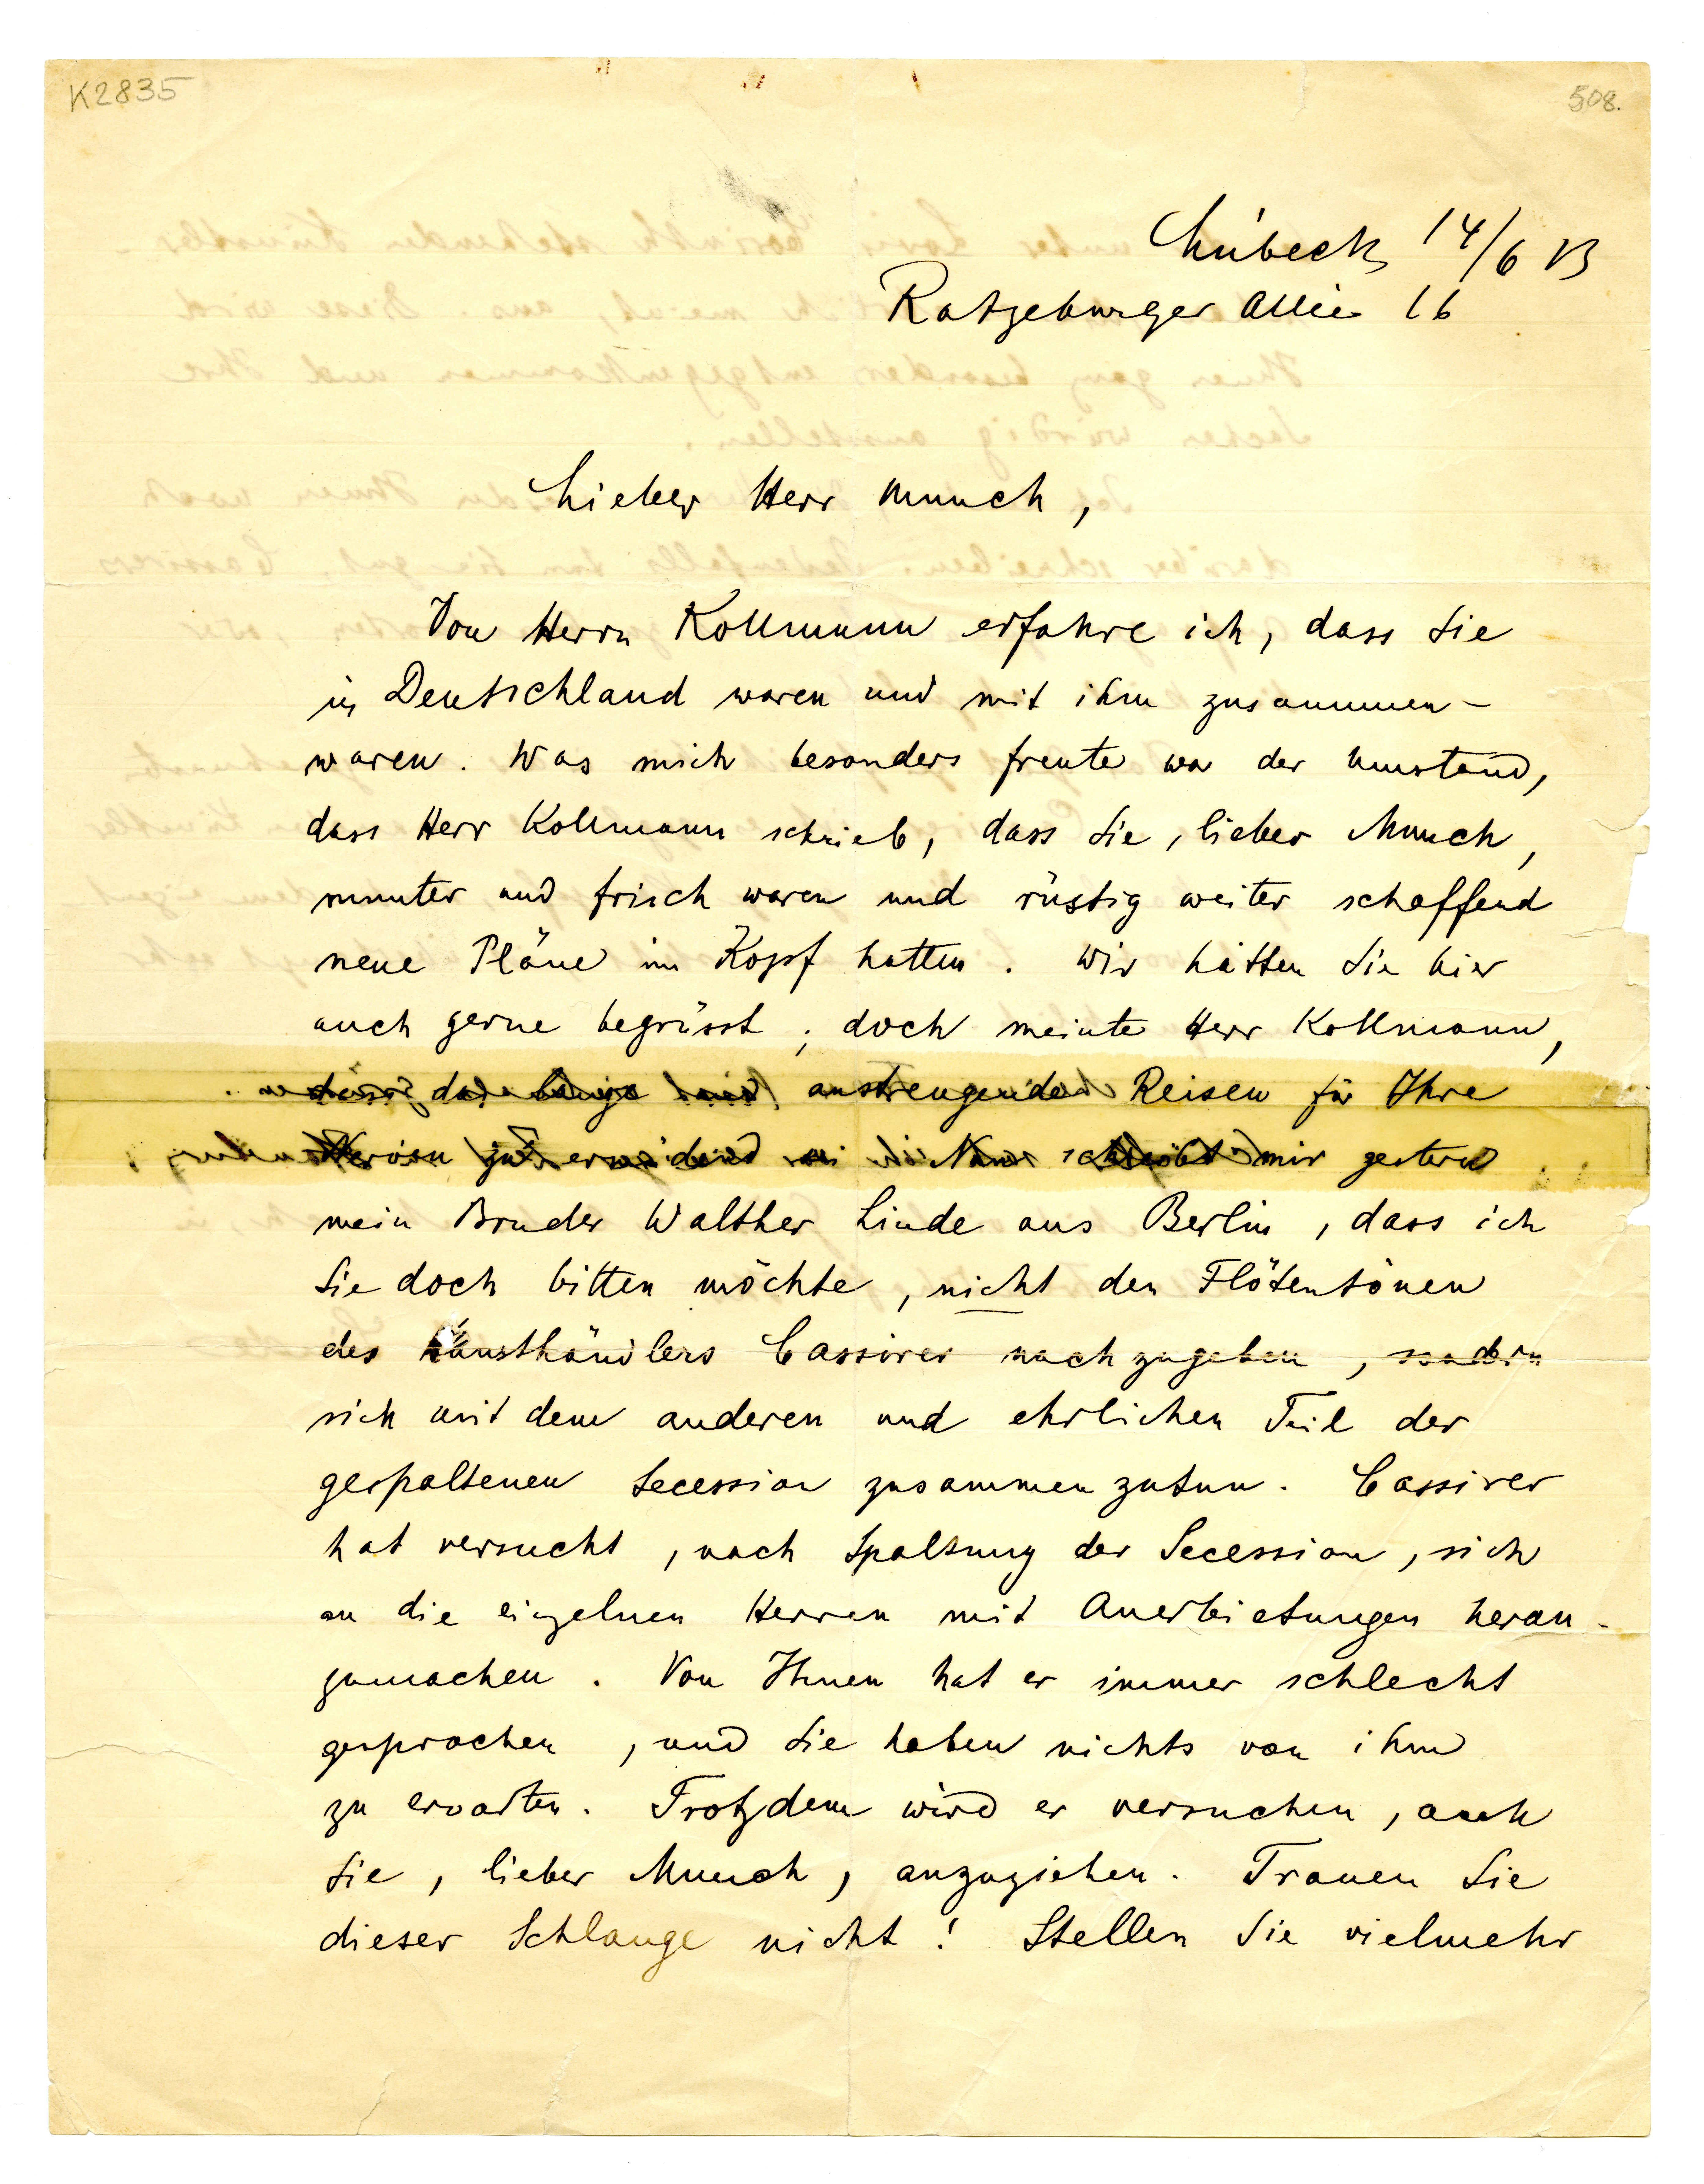 K2835
508.
Lübeck 14/6 13
Ratzeburger Allee 16
Lieber Herr Munch,
Von Herrn Kollmann erfahre ich, dass Sie
in Deutschland waren und mit ihm zusammen-
waren. Was mich besonders freute war der Umstand,
dass Herr Kollmann schrieb, dass Sie, lieber Munch,
munter und frisch waren und rüstig weiter schaffend
neue Pläne im Kopf hatten. Wir hätten Sie hier
auch gerne begrüsst; doch meinte Herr Kollmann,
dass anstrengende Reisen für Ihre
Nerven zu mir gestern
mein Bruder Walther Linde aus Berlin, dass ich
Sie doch bitten möchte, nicht den Flötentönen
des Kunsthändlers Cassirer nachzugeben, sondern
sich mit dem anderen und ehrlichen Teil der
gespaltenen Secession zusammenzutun. Cassirer
hat versucht, nach Spaltung der Secession, sich
an die einzelnen Herren mit Anerbietungen heran-
zumachen. Von Ihnen hat er immer schlecht
gesprochen, und Sie haben nichts von ihm
zu erwarten. Trotzdem wird er versuchen, auch
Sie, lieber Munch, anzuziehen. Trauen Sie
dieser Schlange nicht! Stellen Sie vielmehr